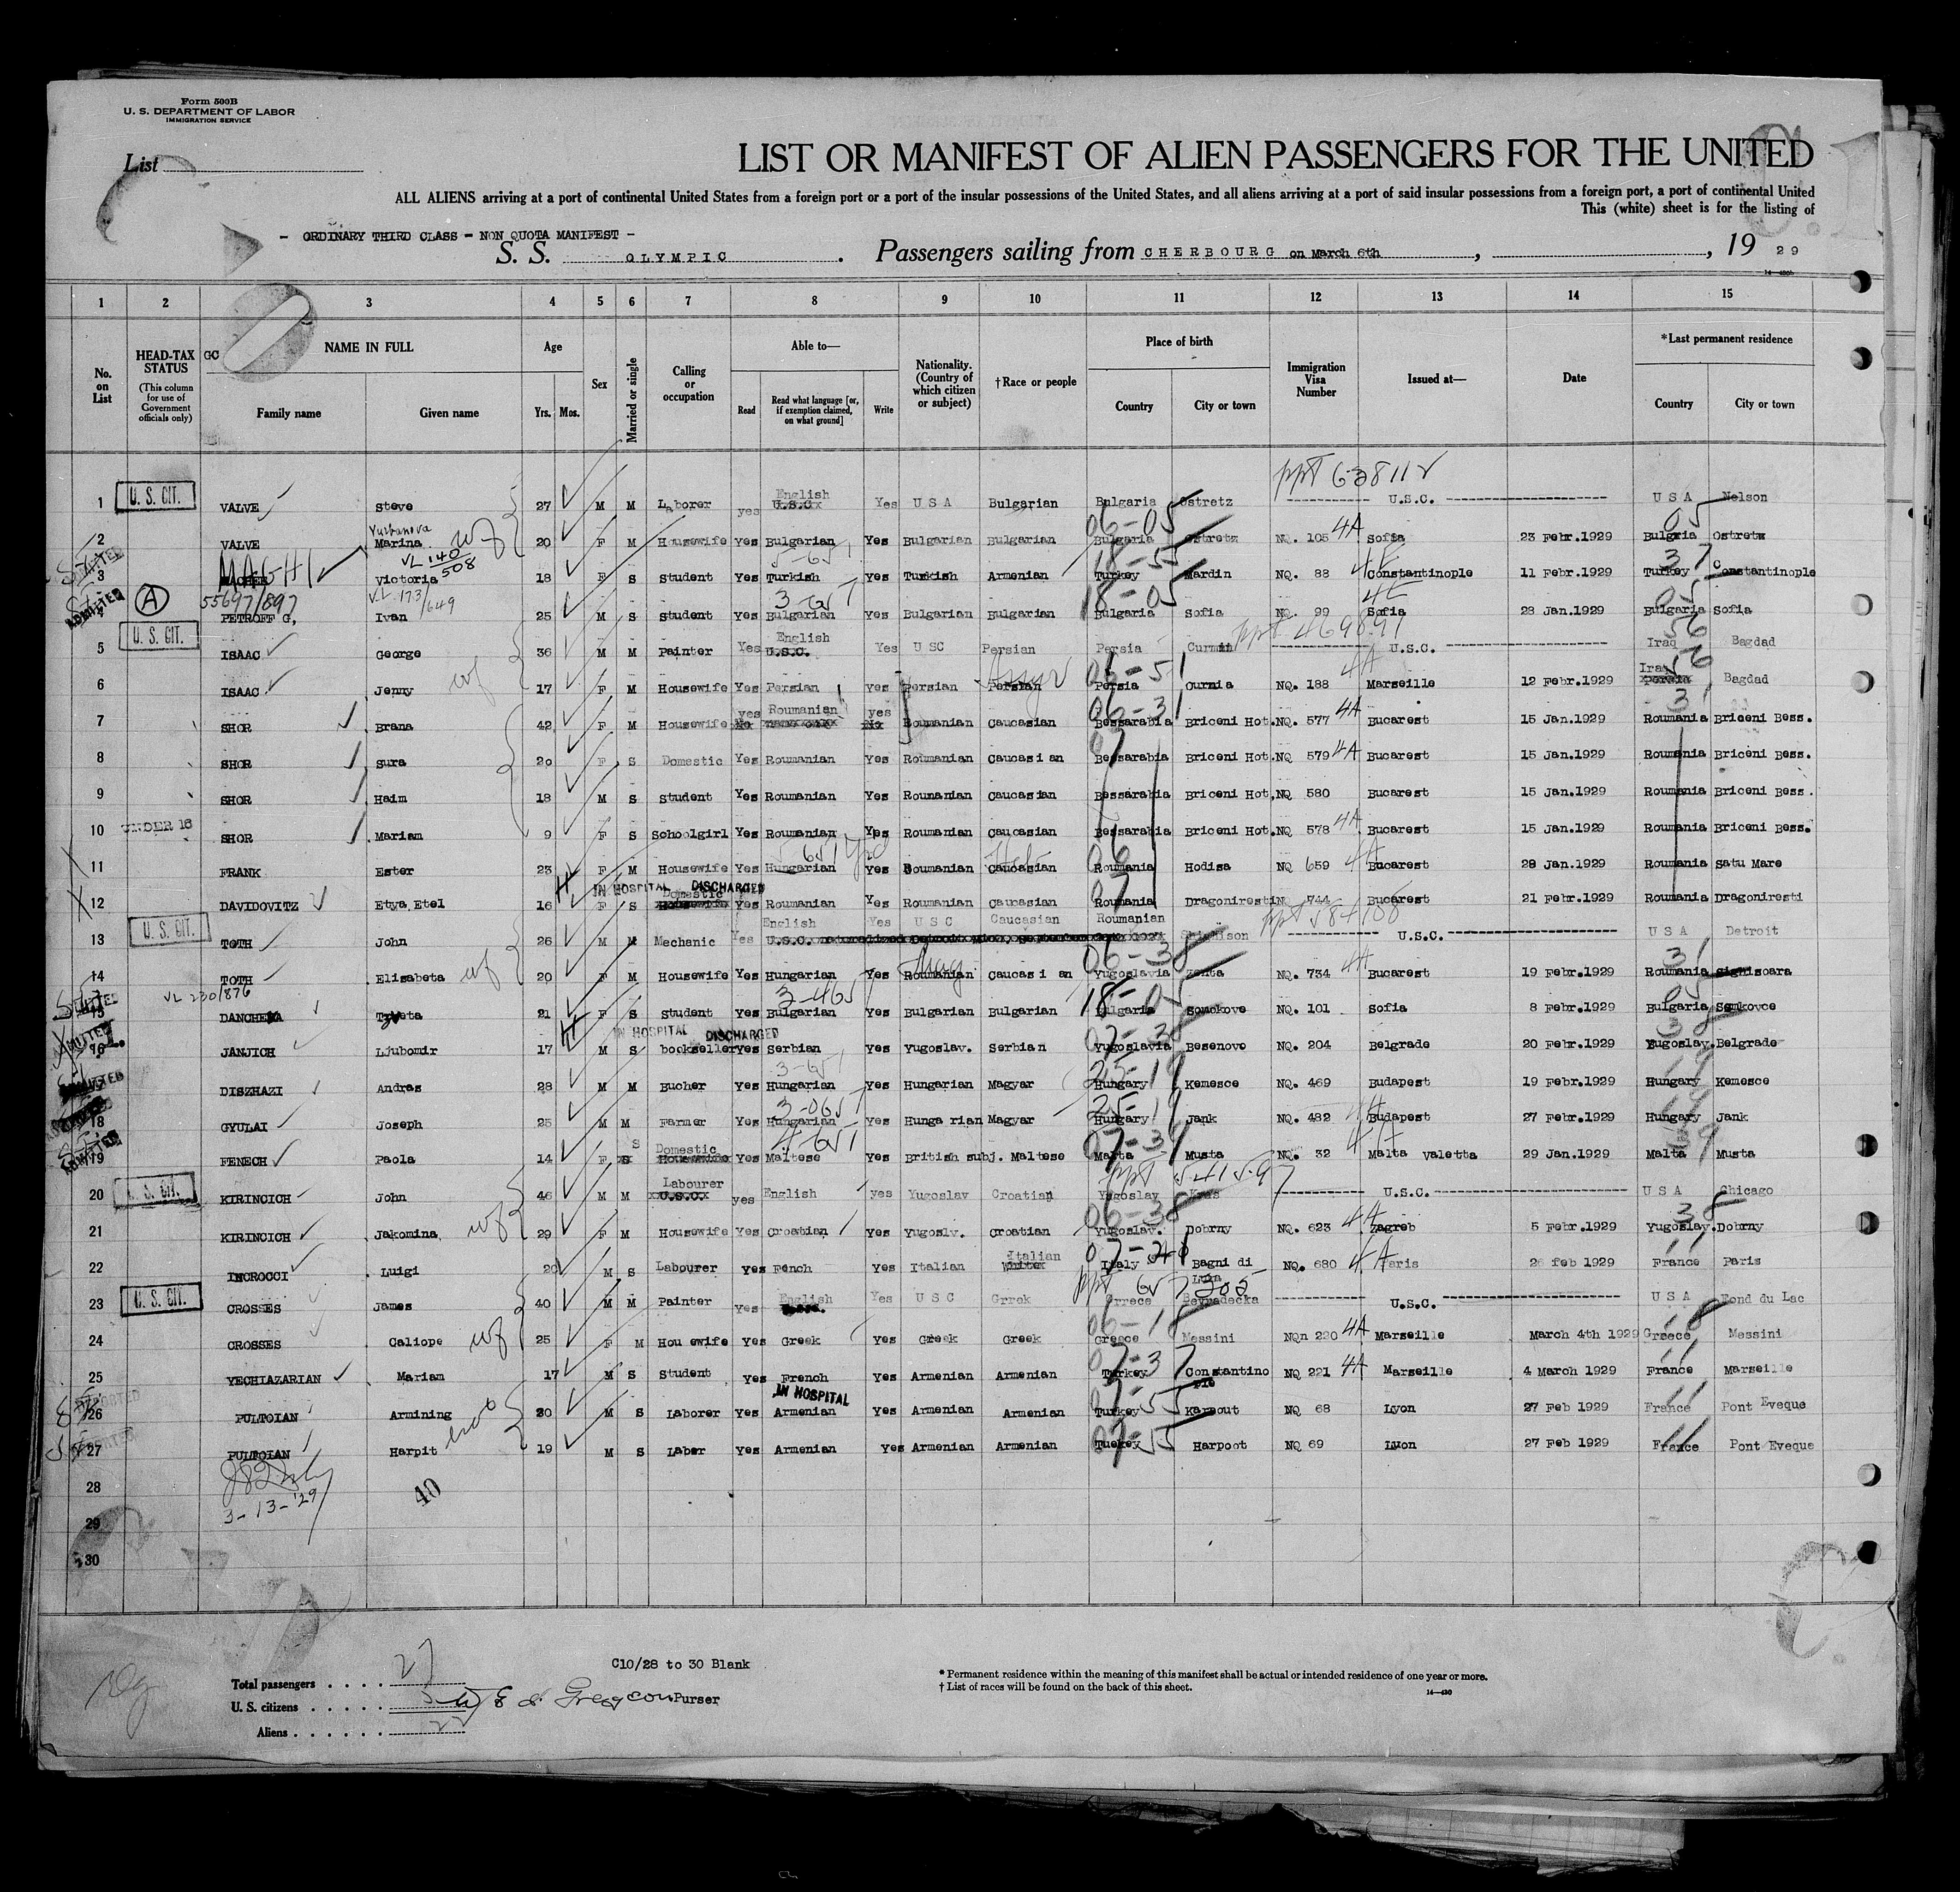 Form 500B
U. S. DEPARTMENT OF LABOR
IMMIGRATION SERVICE
List
LIST OR MANIFEST OF ALIEN PASSENGERS FOR THE UNITED
ALL ALIENS arriving at a port of continental United States from a foreign port or a port of the insular possessions of the United States, and all aliens arriving at a port of said insular possessions from a foreign port, a port of continental United
This (white) sheet is for the listing of
- ORDINARY THIRD CLASS - NON QUOTA MANIFEST -
S. S. OLYMPIC . Passengers sailing from CHERBOURG on March 6th , , 19 29
1 2 3 4 5 6 7 8 9 10 11 12 13 14 15
No. on List
HEAD-TAX STATUS
(This column for use of Government officials only)
GC
NAME IN FULL
Family name Given name
Age
Yrs. Mos.
Sex
Married or single
Calling or occupation
Able to—
Read Read what language [or, if exemption claimed, on what ground] Write
Nationality. (Country of which citizen or subject)
†Race or people
Place of birth
Country City or town
Immigration Visa Number
Issued at—
Date
*Last permanent residence
Country City or town
ppt 638112
1 U. S. CIT. VALVE Steve 27 M M Laborer yes English U.S.C. Yes U S A Bulgarian Bulgaria Ostretz U.S.C. U S A Nelson
2 VALVE Marina wf 20 F M Housewife Yes Bulgarian Yes Bulgarian Bulgarian 06-05 Bulgaria Ostretz NQ. 105 4A Sofia 23 Febr.1929 05 Bulgria Ostretz
VL 140/508
3 MAGHI Victoria 18 F S Student Yes Turkish Yes Turkish Armenian 18-55 Turkey Mardin NQ. 88 4E Constantinople 11 Febr.1929 37 Turkey Constantinople
VL 173/649
4 ADMITTED A 55697/897 PETROFF G, Ivan 25 M S student Yes Bulgarian Yes Bulgarian Bulgarian 18-05 Bulgaria Sofia NQ. 99 4E Sofia 28 Jan.1929 05 Bulgaria Sofia
5 U. S. CIT. ISAAC George 36 M M Painter Yes English U.S.C. Yes U SC Persian Persia ppt 469897 U.S.C. 56 Iraq Bagdad
6 ISAAC Jenny wf 17 F M Housewife Yes Persian yes Persian Persian Assyr 06-51 Persia Ourmia NQ. 188 4A Marseille 12 Febr.1929 Iraq 56 Bagdad
7 SHOR Brana 42 F M Housewife yes Roumanian yes Roumanian Caucasian 06-31 Bessarabia Briceni Hot. NQ. 577 4A Bucarest 15 Jan.1929 31 Roumania Briceni Bess.
8 SHOR Sura 20 F S Domestic Yes Roumanian Yes Roumanian Caucasian Bessarabia Briceni Hot. NQ 579 4A Bucarest 15 Jan.1929 Roumania Briceni Bess.
9 SHOR Haim 18 M S student Yes Roumanian Yes Roumanian Caucasian Bessarabia Briceni Hot, NQ 580 Bucarest 15 Jan.1929 Roumania Briceni Bess.
10 UNDER 16 SHOR Mariam 9 F S Schoolgirl Yes Roumanian Yes Roumanian Caucasian Bessarabia Briceni Hot. NQ 578 4A Bucarest 15 Jan.1929 Roumania Briceni Bess.
11 FRANK Ester 23 F M Housewife Yes Hungarian Yes Roumanian Caucasian 06 Roumania Hodisa NQ 659 4A Bucarest 28 Jan.1929 Roumania Satu Mare
IN HOSPITAL DISCHARGED
12 DAVIDOVITZ Etya Etel 16 F S Domestic Yes Roumanian Yes Roumanian Caucasian 07 Roumania Dragoniresti 744 Bucarest 21 Febr.1929 Roumania Dragoniresti
13 U. S. CIT. TOTH John 26 M M Mechanic Yes English U.S.C. Yes U S C Caucasian Roumanian U.S.C. U S A Detroit
14 TOTH Elisabeta wf 20 F M Housewife Yes Hungarian Yes Roumanian Mag Caucasian 06-38 Yugoslavia Zenta NQ. 734 4A Bucarest 19 Febr.1929 31 Roumania Sighisoara
VL 230/876
15 DANCHEVA 21 F S student Yes Bulgarian Yes Bulgarian Bulgarian 18-05 Bulgaria Somokove NQ. 101 Sofia 8 Febr.1929 05 Bulgaria Somkovce
IN HOSPITAL DISCHARGED
16 JANJICH Ljubomir 17 M S bookseller yes Serbian Yes Yugoslav. Serbian 07-38 Yugoslavia Besenovo NQ. 204 Belgrade 20 Febr.1929 38 Yugoslav. Belgrade
17 DISZHAZI Andras 28 M M Bucher Yes Hungarian Yes Hungarian Magyar 25-19 Hungary Kemesce NQ. 469 Budapest 19 Febr.1929 19 Hungary Kemesce
18 GYULAI Joseph 25 M M Farmer Yes Hungarian yes Hungarian Magyar 25-19 Hungary Jank NQ. 482 Budapest 27 Febr.1929 19 Hungary Jank
19 ADMITTED FENECH Paola 14 F S Domestic Yes Maltese Yes British subj. Maltese 07-39 Malta Musta NQ. 32 Malta Valetta 29 Jan.1929 39 Malta Musta
ppt 541597
20 U. S. CIT. KIRINCICH John 46 M M Labourer yes English yes Yugoslav Croatian Yugoslav Kras U.S.C. U S A Chicago
21 KIRINCICH Jakomina wf 29 F M Housewife Yes Croatian Yes Yugoslv. Croatian 06-38 Yugoslav. Dobrny NQ. 623 4A Zagreb 5 Febr.1929 38 Yugoslav. Dobrny
22 INCROCCI Luigi 20 M S Labourer Yes Fench Yes Italian Italian Italy Bagni di Luka NQ. 680 4A Paris 26 feb 1929 France Paris
23 U. S. CIT. CROSSES James 40 M M Painter Yes English Yes U S C Grrek Grrece U.S.C. U S A Fond du Lac
24 CROSSES Caliope wf 25 F M Hou ewife Yes Greek Yes Greek Greek 06-18 Greece Messini NQn 220 4A Marseille March 4th 1929 18 Greece Messini
25 YECHIAZARIAN Mariam 17 M S Student Yes French Yes Armenian Armenian 07-37 Turkey Constantinople NQ 221 4A Marseille 4 March 1929 11 France Marseille
IN HOSPITAL
26 PULTOIAN Armining 20 M S Laborer Yes Armenian Yes Armenian Armenian 07-55 Turkey NQ 68 Lyon 27 Feb 1929 France Pont Eveque
27 PULTOIAN Harpit 19 M S Laber Yes Armenian Yes Armenian Armenian 07-55 Tuekey Harpoot NQ 69 Lyon 27 Feb 1929 11 France Pont Eveque
28
3-13-'29 40
29
30
C10/28 to 30 Blank
Total passengers . . . . 27
U. S. citizens . . . . . 5 Purser
Aliens . . . . . . 22
* Permanent residence within the meaning of this manifest shall be actual or intended residence of one year or more.
† List of races will be found on the back of this sheet.
14—430